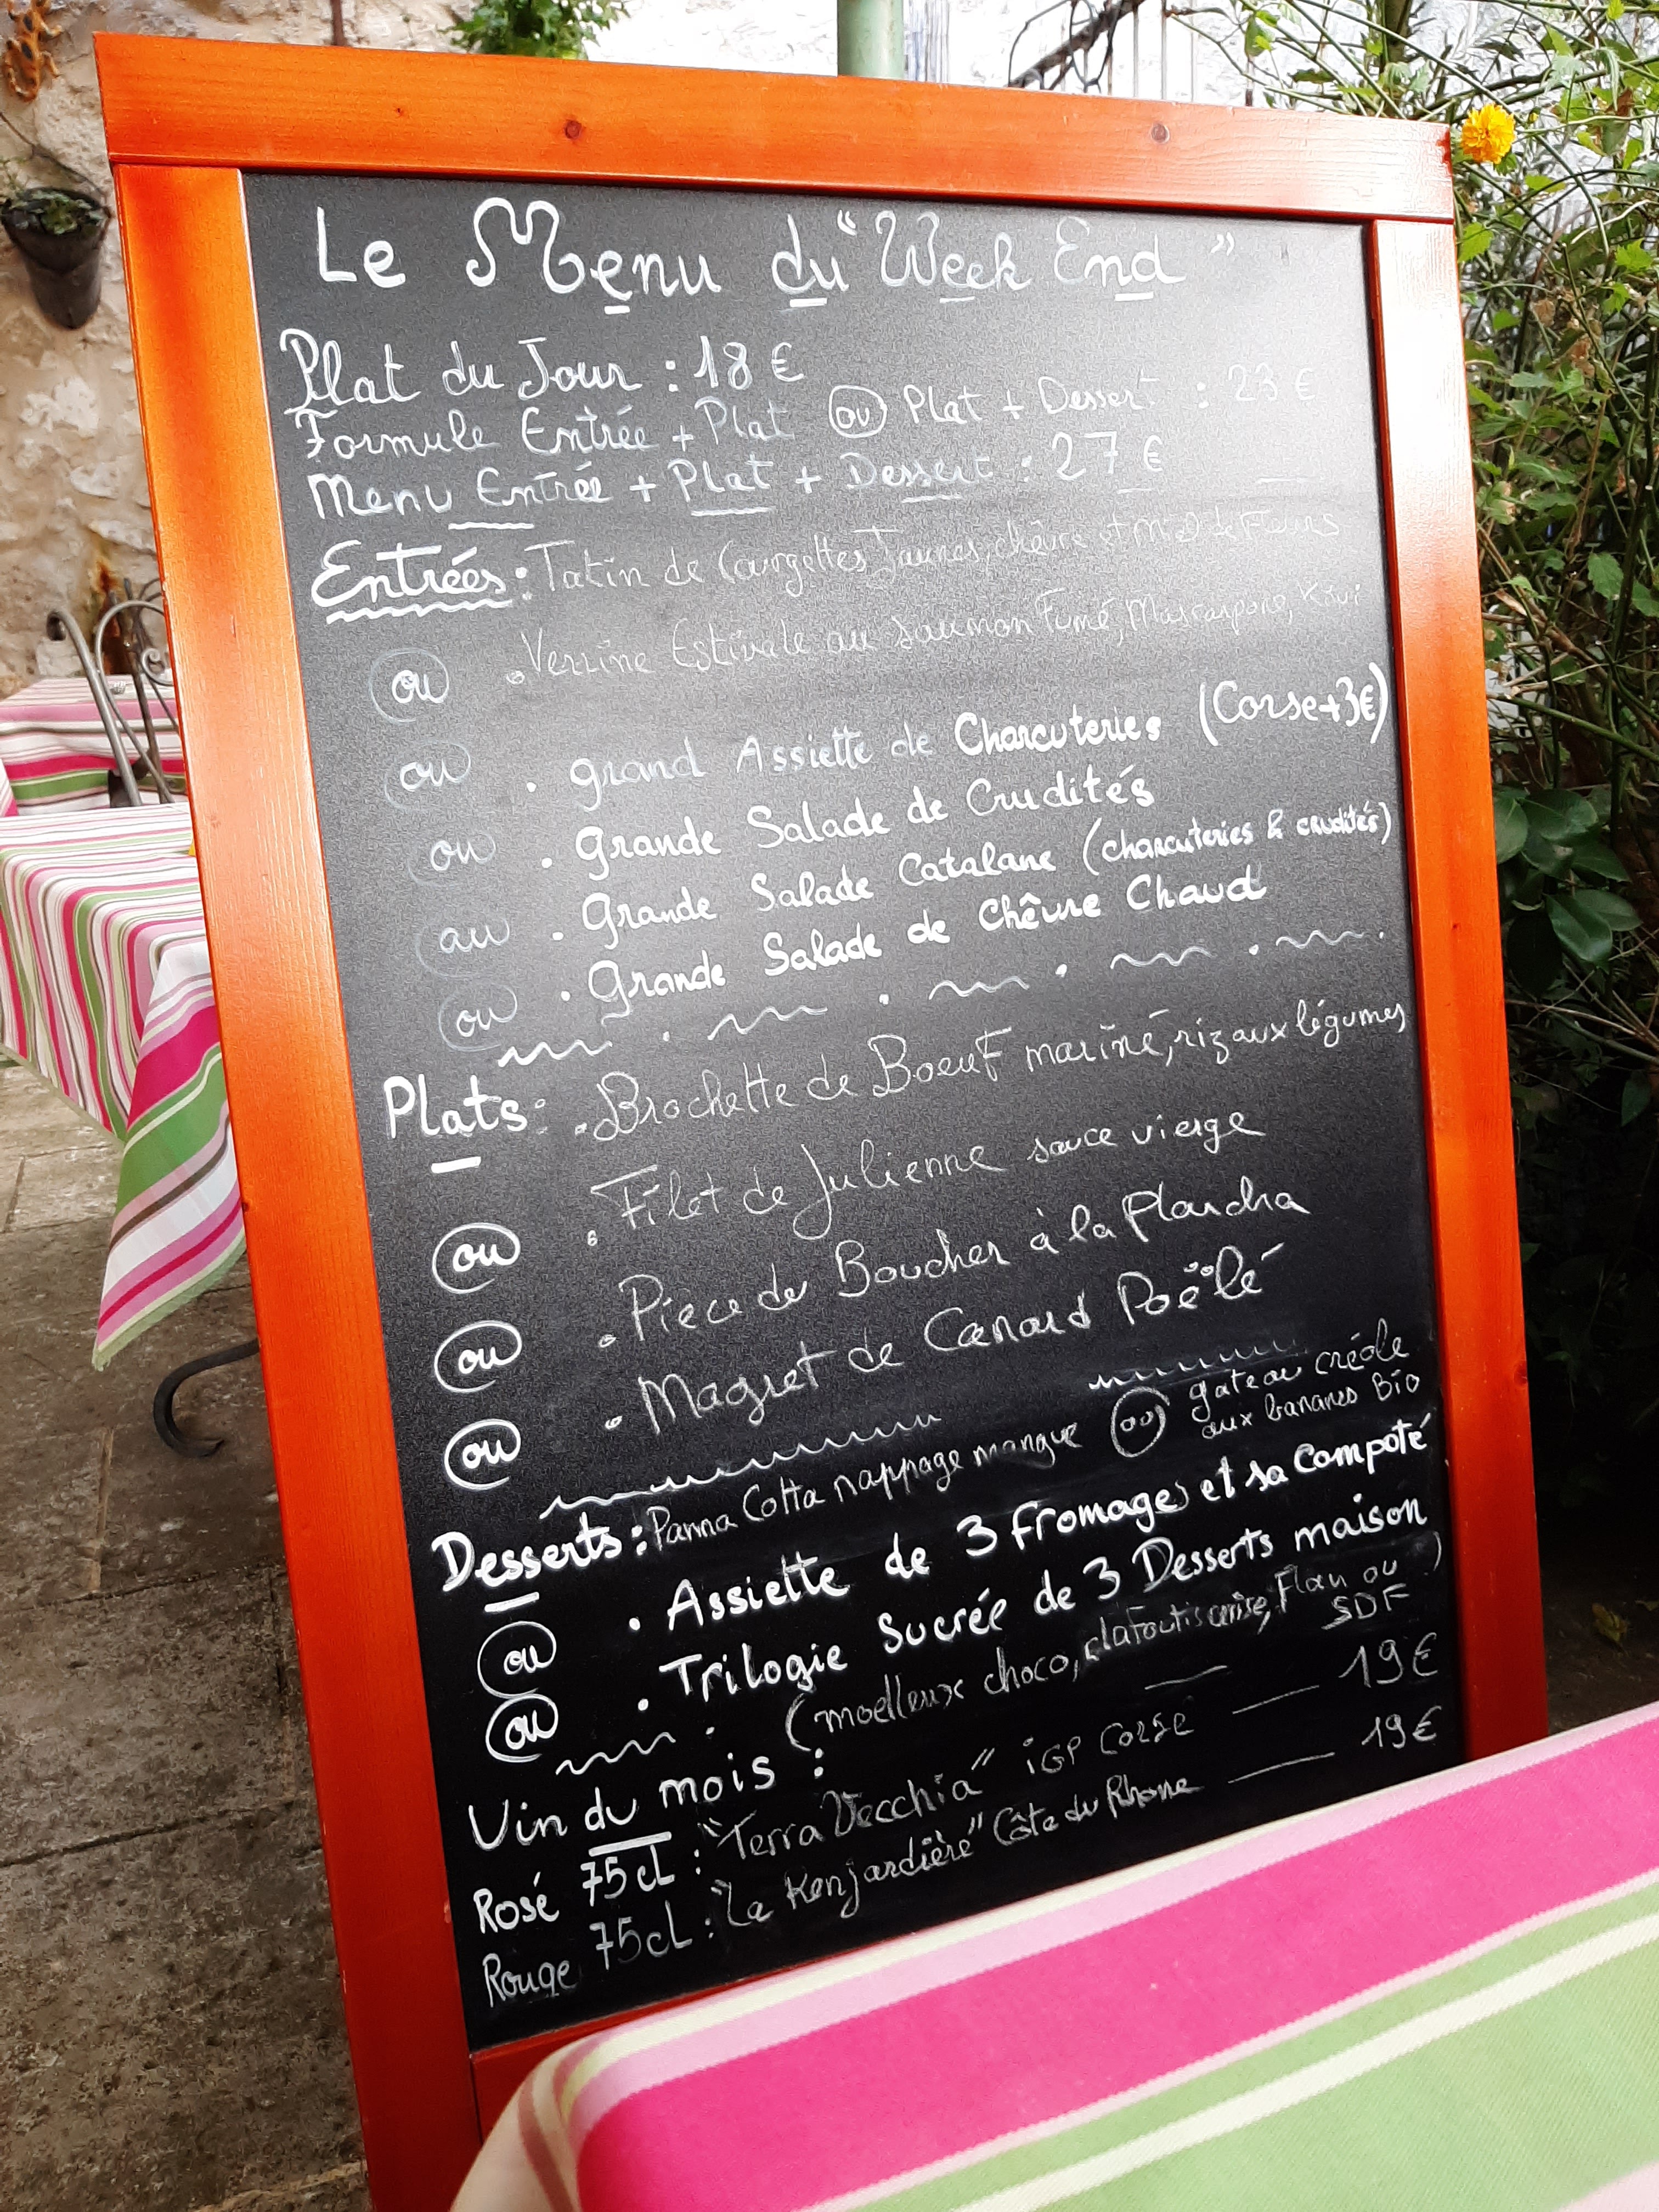 Le Menu du "Week End"
Plat du Jour : 18 €
Formule Entrée + Plat ou Plat + Dessert : 23 €
Menu Entrée + Plat + Dessert : 27 €
Entrées : Tatin de Courgettes Jaunes, chèvre et Miel de Fleurs
ou . Verrine Estivale au Saumon Fumé, Mascarpone, Kiwi
ou . grand Assiette de Charcuteries (Corse+3€)
ou . grande Salade de Crudités
au . Grande Salade Catalane (charcuteries & crudités)
ou . Grande Salade de Chèvre Chaud
Plats : . Brochette de Boeuf mariné, riz aux légumes
ou . Filet de Julienne sauce vierge
ou . Pièce du Boucher à la Plancha
ou . Magret de Canard Poëlé
Desserts : Panna Cotta nappage mangue ou gateau créole
aux bananes Bio
ou . Assiette de 3 fromages et sa compoté
ou . Trilogie Sucrée de 3 Desserts maison
(moelleux choco, clafoutis cerise, Flan ou SDF)
Vin du mois :
Rosé 75cl : "Terra Vecchia" iGP CORSE 19€
Rouge 75cl : "La Renjardière" Côte du Rhone 19€